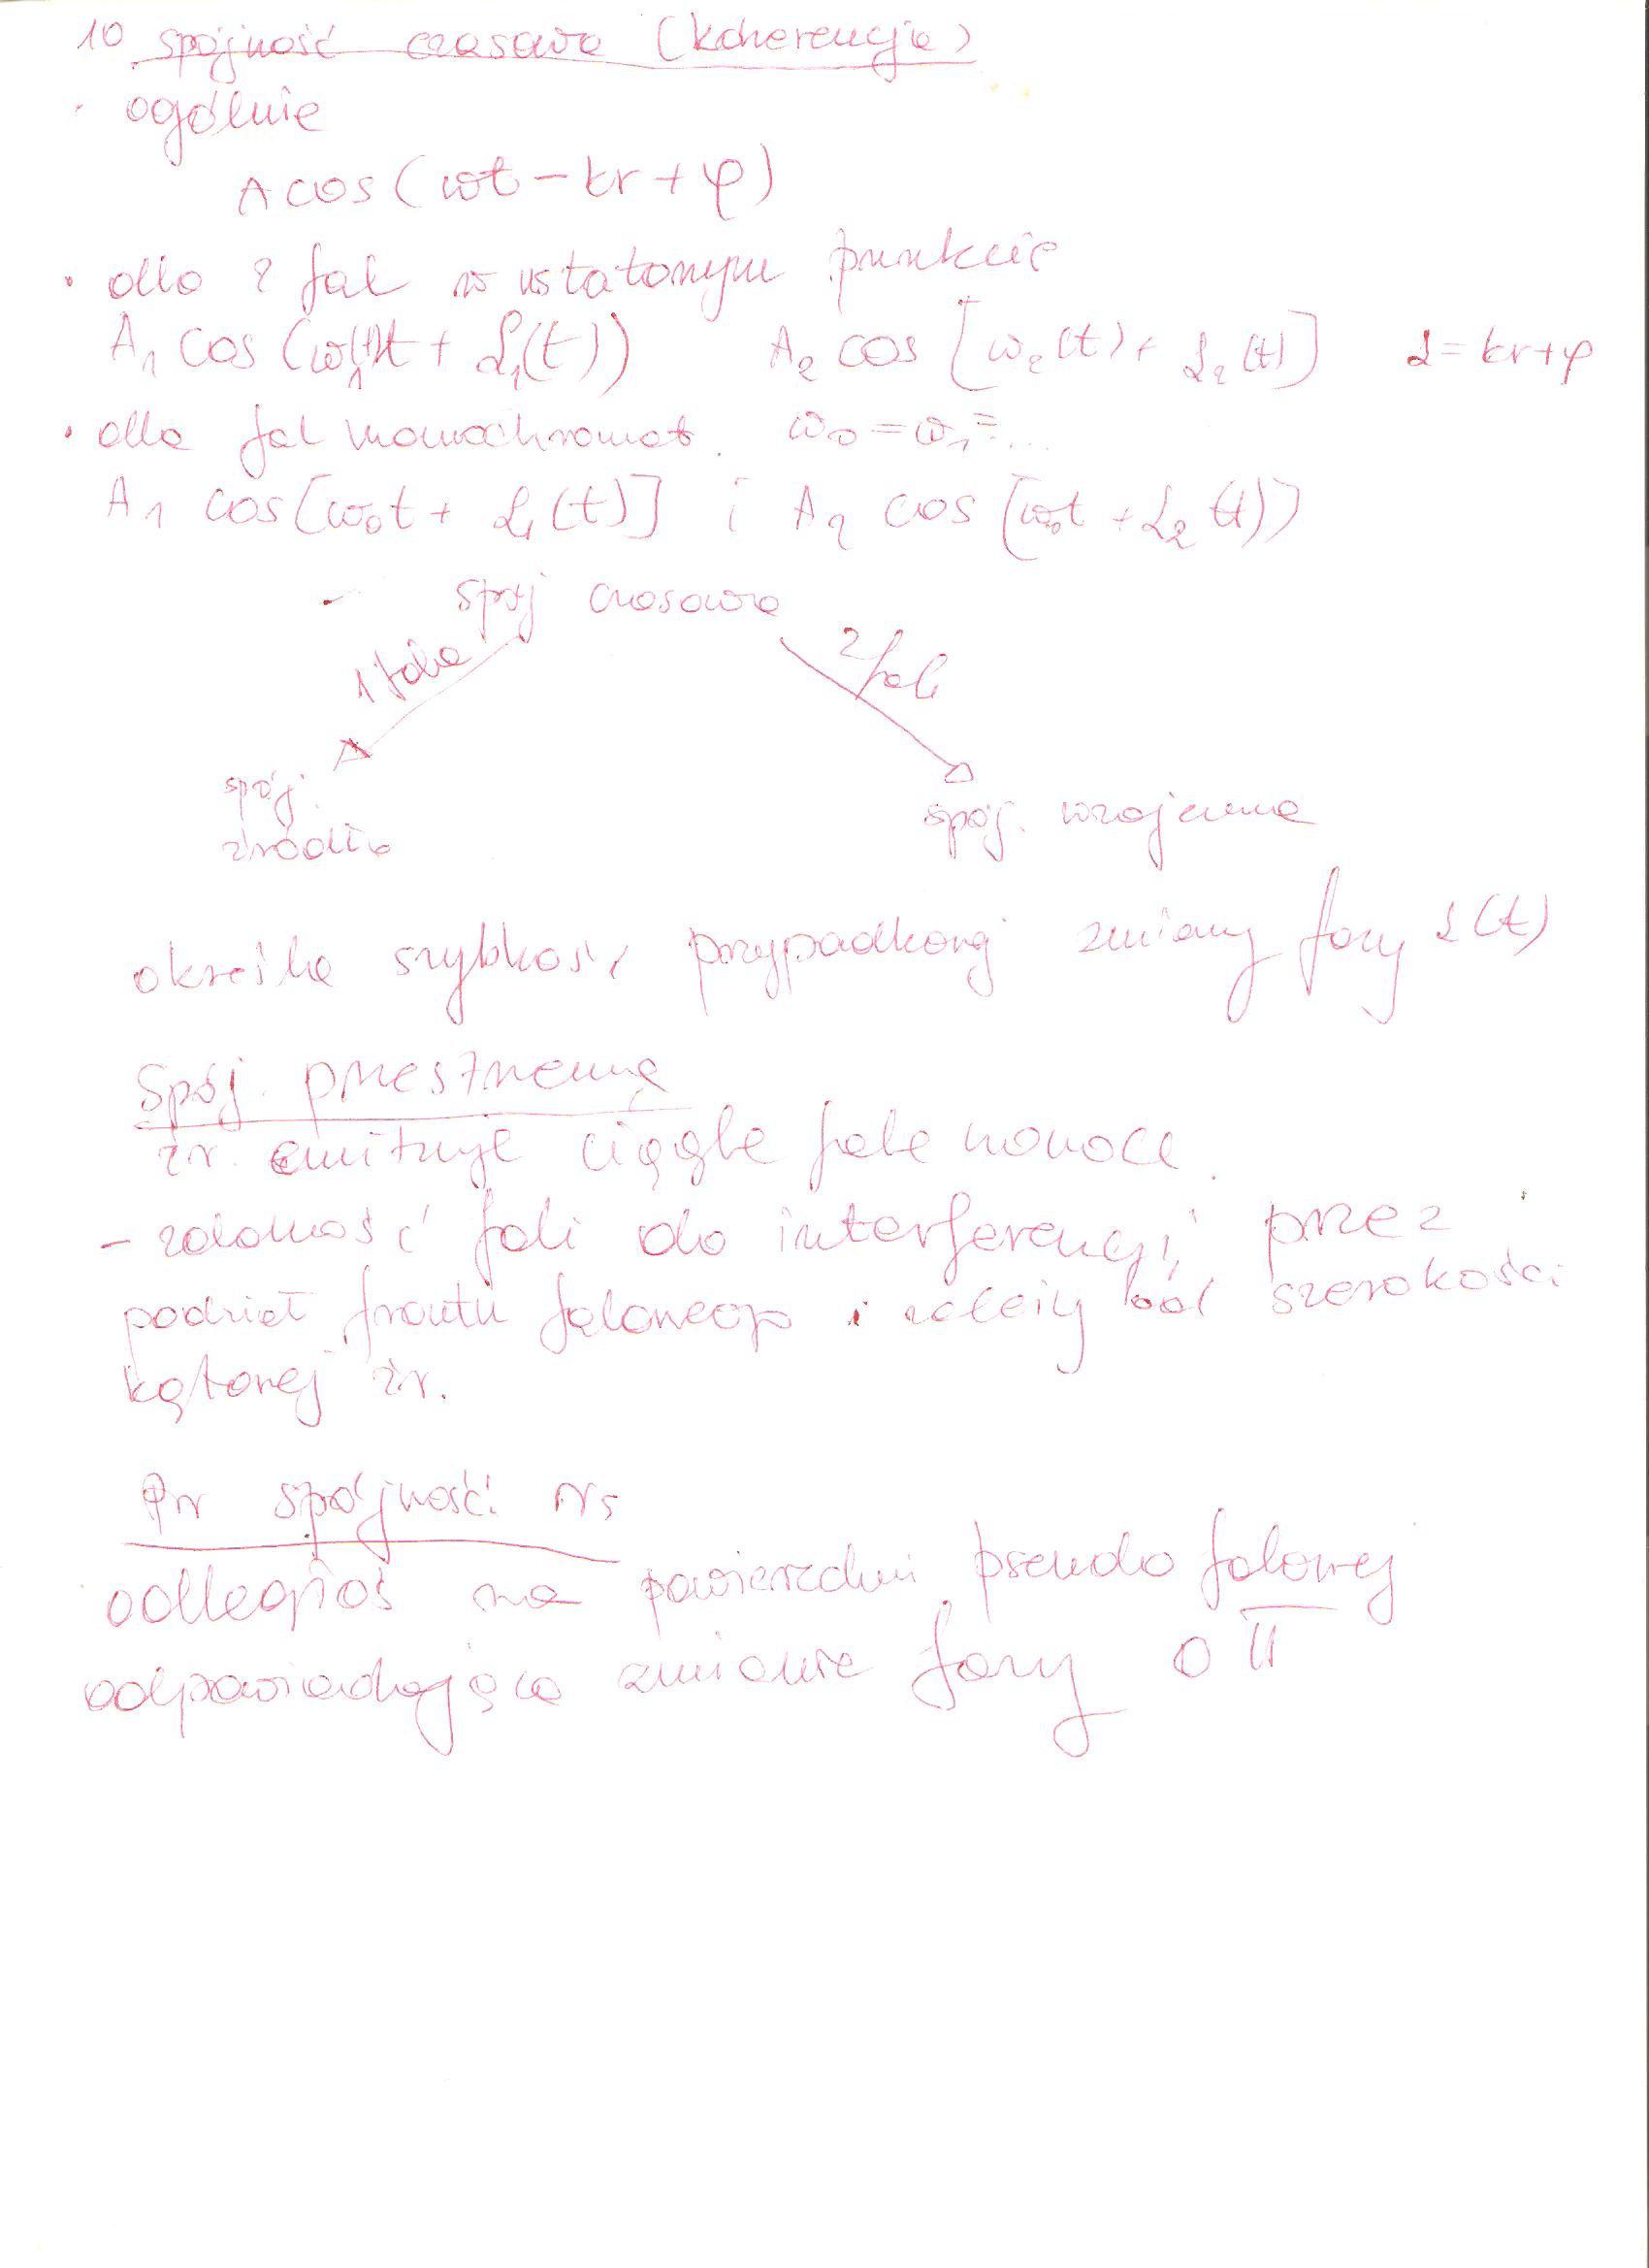 10 spójność czasowa (koherencja)
· ogólnie
A cos(ωt - kr + φ)
· dla 2 fal w ustalonym punkcie
A₁ cos (ω₁t + α₁(t)) A₂ cos [ω₂(t) + α₂(t)] α = kr+φ
· dla fal monochromat. ω₀ = ω₁ = ...
A₁ cos[ω₀t + α₁(t)] i A₂ cos [ω₀t + α₂(t)]
- spój czasowa
1 fala 2 fali
spój. źródła spój. wzajemna
określa szybkość przypadkowej zmiany fazy α(t)
Spój. przestrzenna
źr. emituje ciągle fale monoch.
- zdolność fali do interferencji przez
podział frontu falowego i zależy od szerokości
kątowej źr.
Pr spójności
odległość na powierzchni pseudo falowej
odpowiadająca zmianie fazy o π